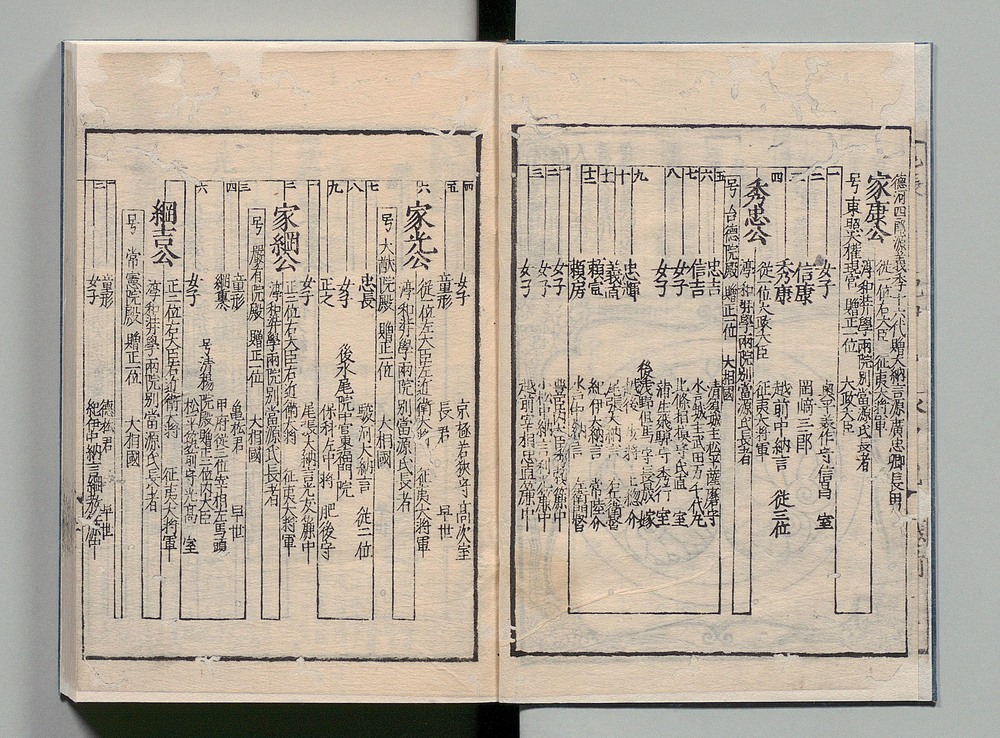 徳河四郎源義季十六代贈大納言源廣忠卿長男
家康公
従一位右大臣 征夷大将軍
淳和弉學兩院別當源氏長者
号東照大権現宮 贈正一位 大政大臣
一 女子 奥平美作守信昌室
二 信康 岡崎三郎
三 秀康 越前中納言 従三位
四
秀忠公
従一位大政大臣 征夷大将軍
淳和弉學兩院別當源氏長者
号台德院殿 贈正一位 大相國
五 忠吉 清須城主松平薩摩守
六 信吉 水戸城主武田万千代丸
七 女子 北條相模守氏直室
八 女子 蒲生飛騨守秀行室
九 忠輝
十 義直
十一 頼宣 紀伊大納言 常陸介
十二 頼房 水戸中納言 左衛門督
一 女子
二 女子
三 女子
四 女子 京極若狭守高次室
五 童形 長君 早世
六
家光公
従一位左大臣左近衛大将 征夷大将軍
淳和弉學兩院別當源氏長者
号大猷院殿 贈正一位 大相國
七 忠長 駿河大納言 従二位
八 女子 後水尾院中宮東福門院
九 正之 保科左中将 肥後守
一 女子 尾張大納言光友簾中
二
家綱公
正二位右大臣右近衛大将 征夷大将軍
淳和弉學兩院別當源氏長者
号嚴有院殿 贈正一位 大相國
三 童形 亀松君 早世
四 綱重 甲府従三位宰相左馬頭
号清楊院殿贈正二位内大臣
六 女子 松平筑前守光高室
綱吉公
正二位右大臣右近衛大将 征夷大将軍
淳和弉學兩院別當源氏長者
号常憲院殿 贈正一位 大相國
童形 德松君 早世
女子 紀伊中納言綱教簾中